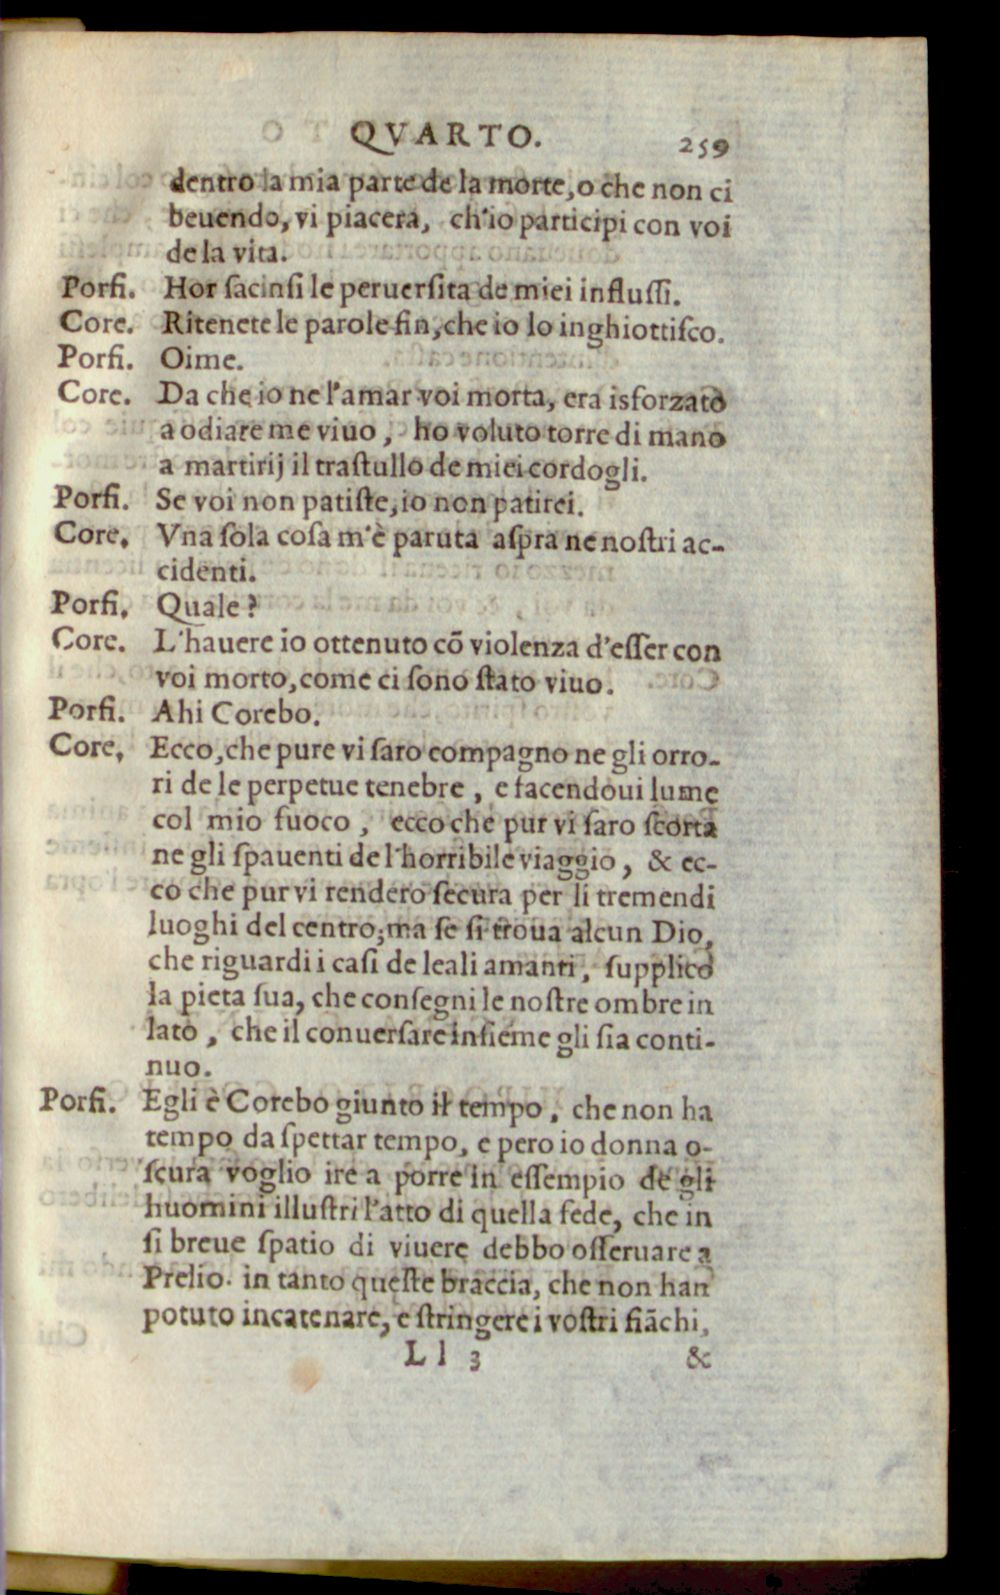 QVARTO. 259
dentro la mia parte de la morte, o che non ci
beuendo, vi piacera, ch'io participi con voi
de la vita.
Porfi. Hor facinſi le peruerſita de miei influſſi.
Core. Ritenete le parole fin, che io lo inghiottiſco.
Porfi. Oime.
Core. Da che io ne l'amar voi morta, era isforzato
a odiare me viuo, ho voluto torre di mano
a martirij il traſtullo de miei cordogli.
Porfi. Se voi non patiſte, io non patirei.
Core. Vna ſola coſa m'è paruta aſpra ne noſtri ac-
cidenti.
Porfi. Quale?
Core. L'hauere io ottenuto cõ violenza d'eſſer con
voi morto, come ci ſono ſtato viuo.
Porfi. Ahi Corebo.
Core. Ecco, che pure vi ſaro compagno ne gli orro-
ri de le perpetue tenebre, e facendoui lume
col mio fuoco, ecco che pur vi ſaro ſcorta
ne gli ſpauenti de l'horribile viaggio, & ec-
co che pur vi rendero ſecura per li tremendi
luoghi del centro; ma ſe ſi troua alcun Dio,
che riguardi i caſi de leali amanti, ſupplico
la pieta ſua, che conſegni le noſtre ombre in
lato, che il conuerſare inſieme gli ſia conti-
nuo.
Porfi. Egli è Corebo giunto il tempo, che non ha
tempo da ſpettar tempo, e pero io donna o-
ſcura voglio ire a porre in eſſempio de gli
huomini illuſtri l'atto di quella fede, che in
ſi breue ſpatio di viuere debbo oſſeruare a
Prelio. in tanto queſte braccia, che non han
potuto incatenare, e ſtringere i voſtri fiãchi,
Ll 3 &